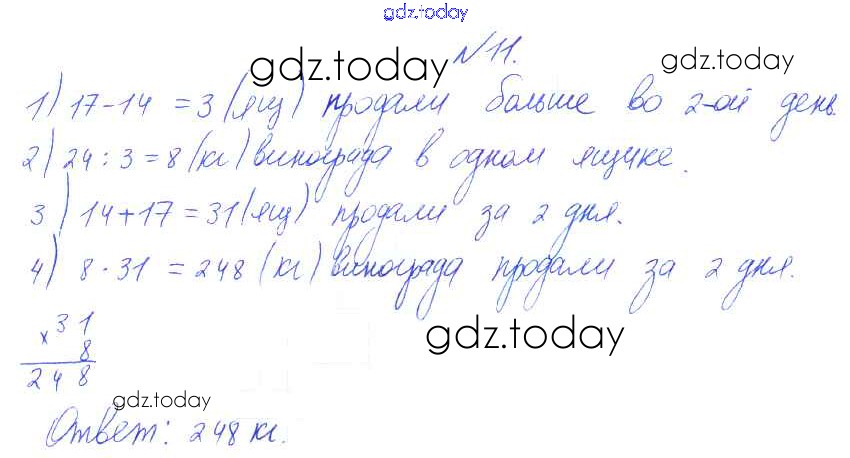 gdz.today
gdz.today N 11. gdz.today
1) 17-14 = 3 (ящ) продали больше во 2-ой день.
2) 24 : 3 = 8 (кг) винограда в одном ящике.
3) 14+17 = 31 (ящ) продали за 2 дня.
4) 8 · 31 = 248 (кг) винограда продали за 2 дня.
x 31
gdz.today
8
248
gdz.today
Ответ: 248 кг.